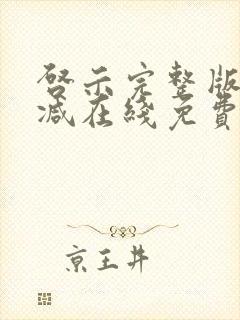 啓示完整版
减在綫免費
京王井